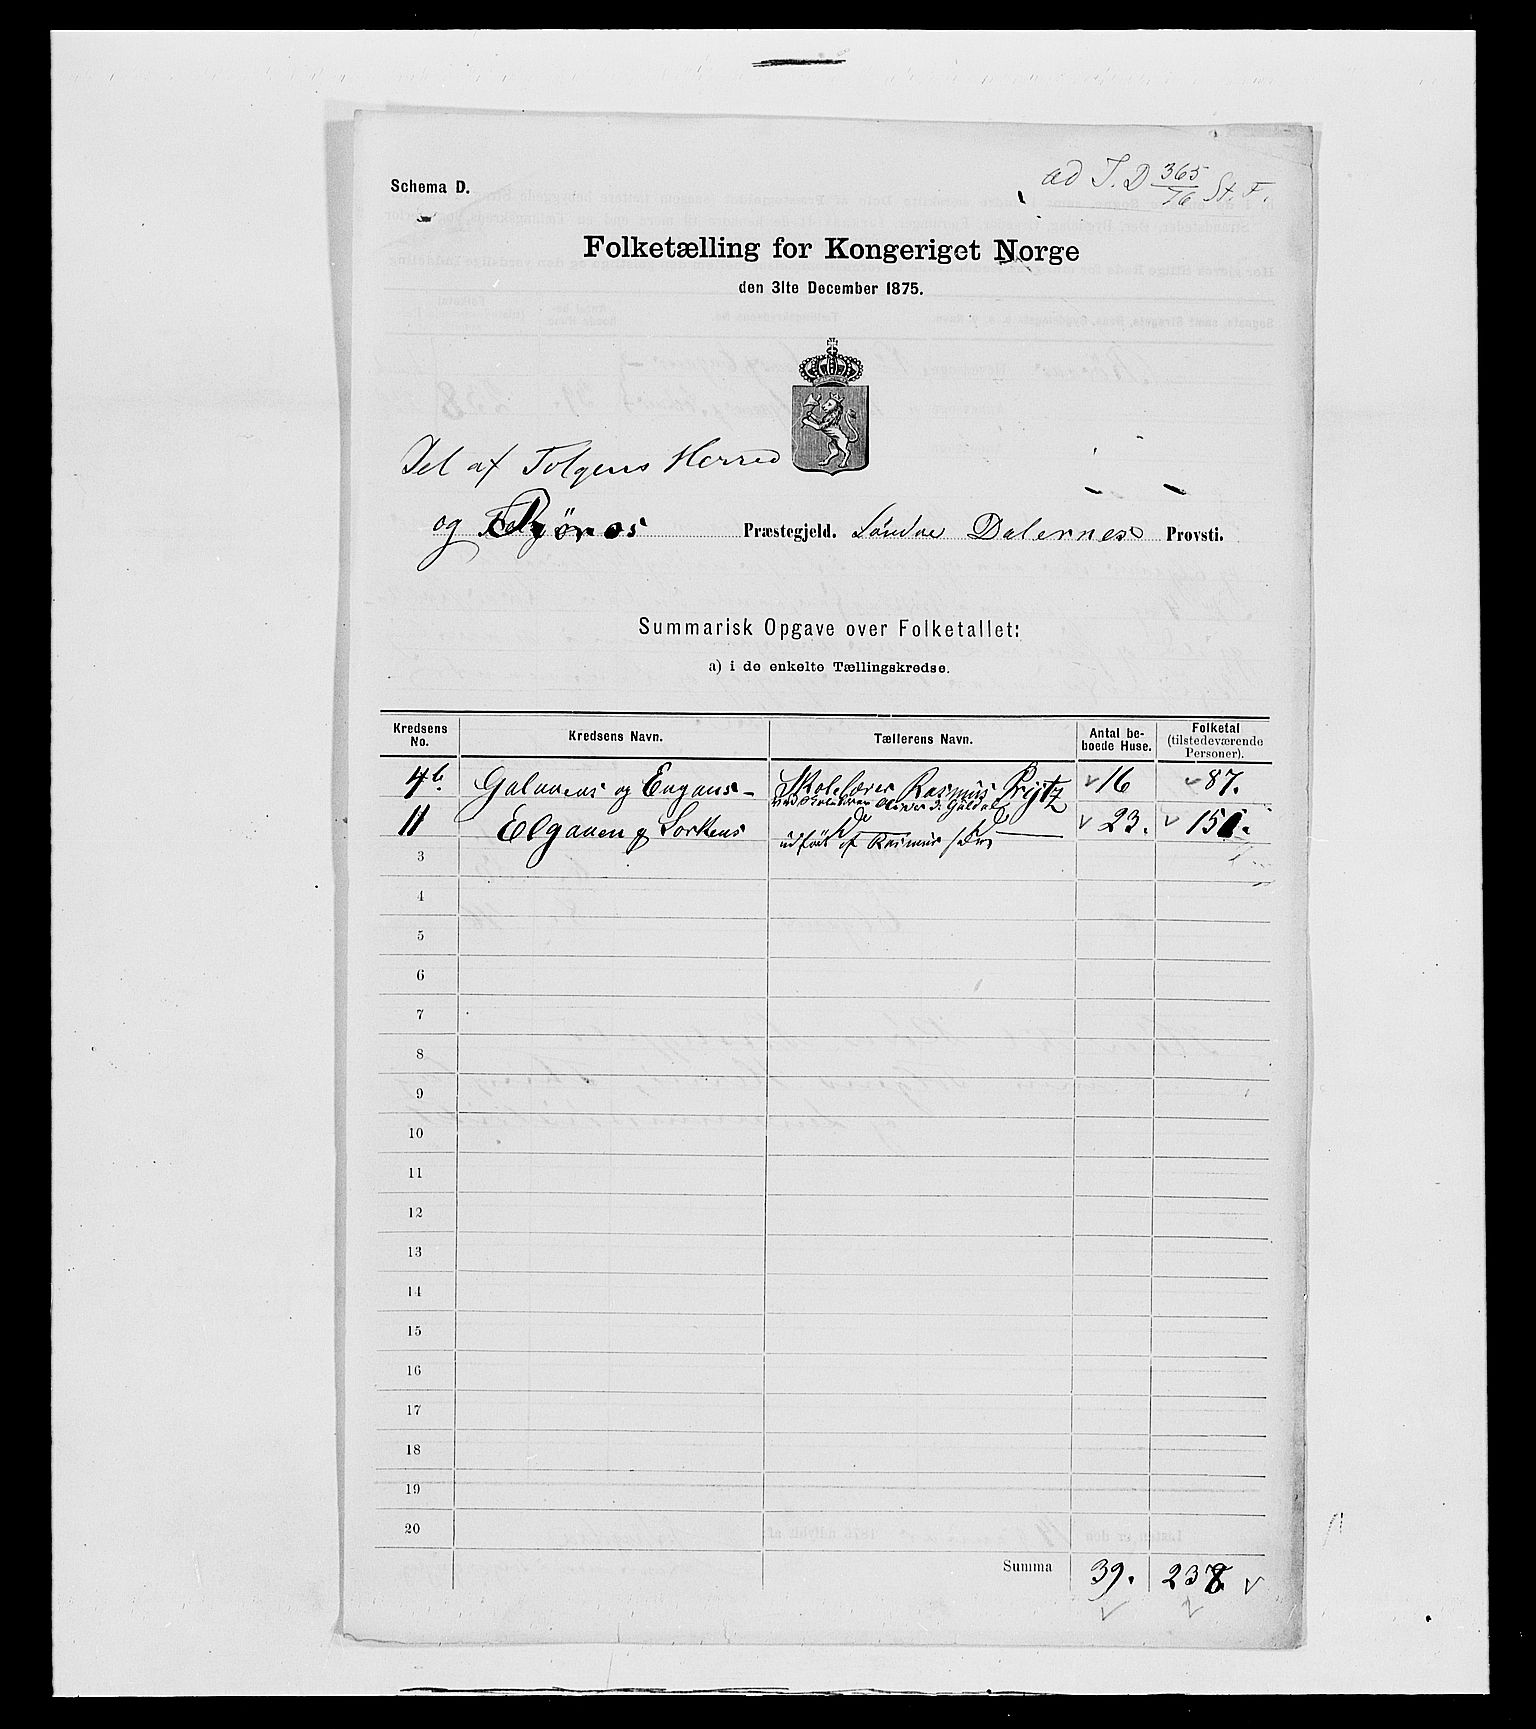 Schema D.
ad J. D 365/76 St. F.
Folketælling for Kongeriget Norge
den 31te December 1875.
Del af Tolgens Herred
og Røros Præstegjeld. Søndre Dalernes Provsti.
Summarisk Opgave over Folketallet:
a) i de enkelte Tællingskredse.
Kredsens No. Kredsens Navn. Tællerens Navn. Antal beboede Huse. Folketal (tilstedeværende Personer).
4b Galaaens og Engans- Skolelærer Rasmus Prytz 16 87.
11 Elgaaen og Sorkens 23. 151.
udført af Rasmus
3
4
5
6
7
8
9
10
11
12
13
14
15
16
17
18
19
20
Summa 39. 238